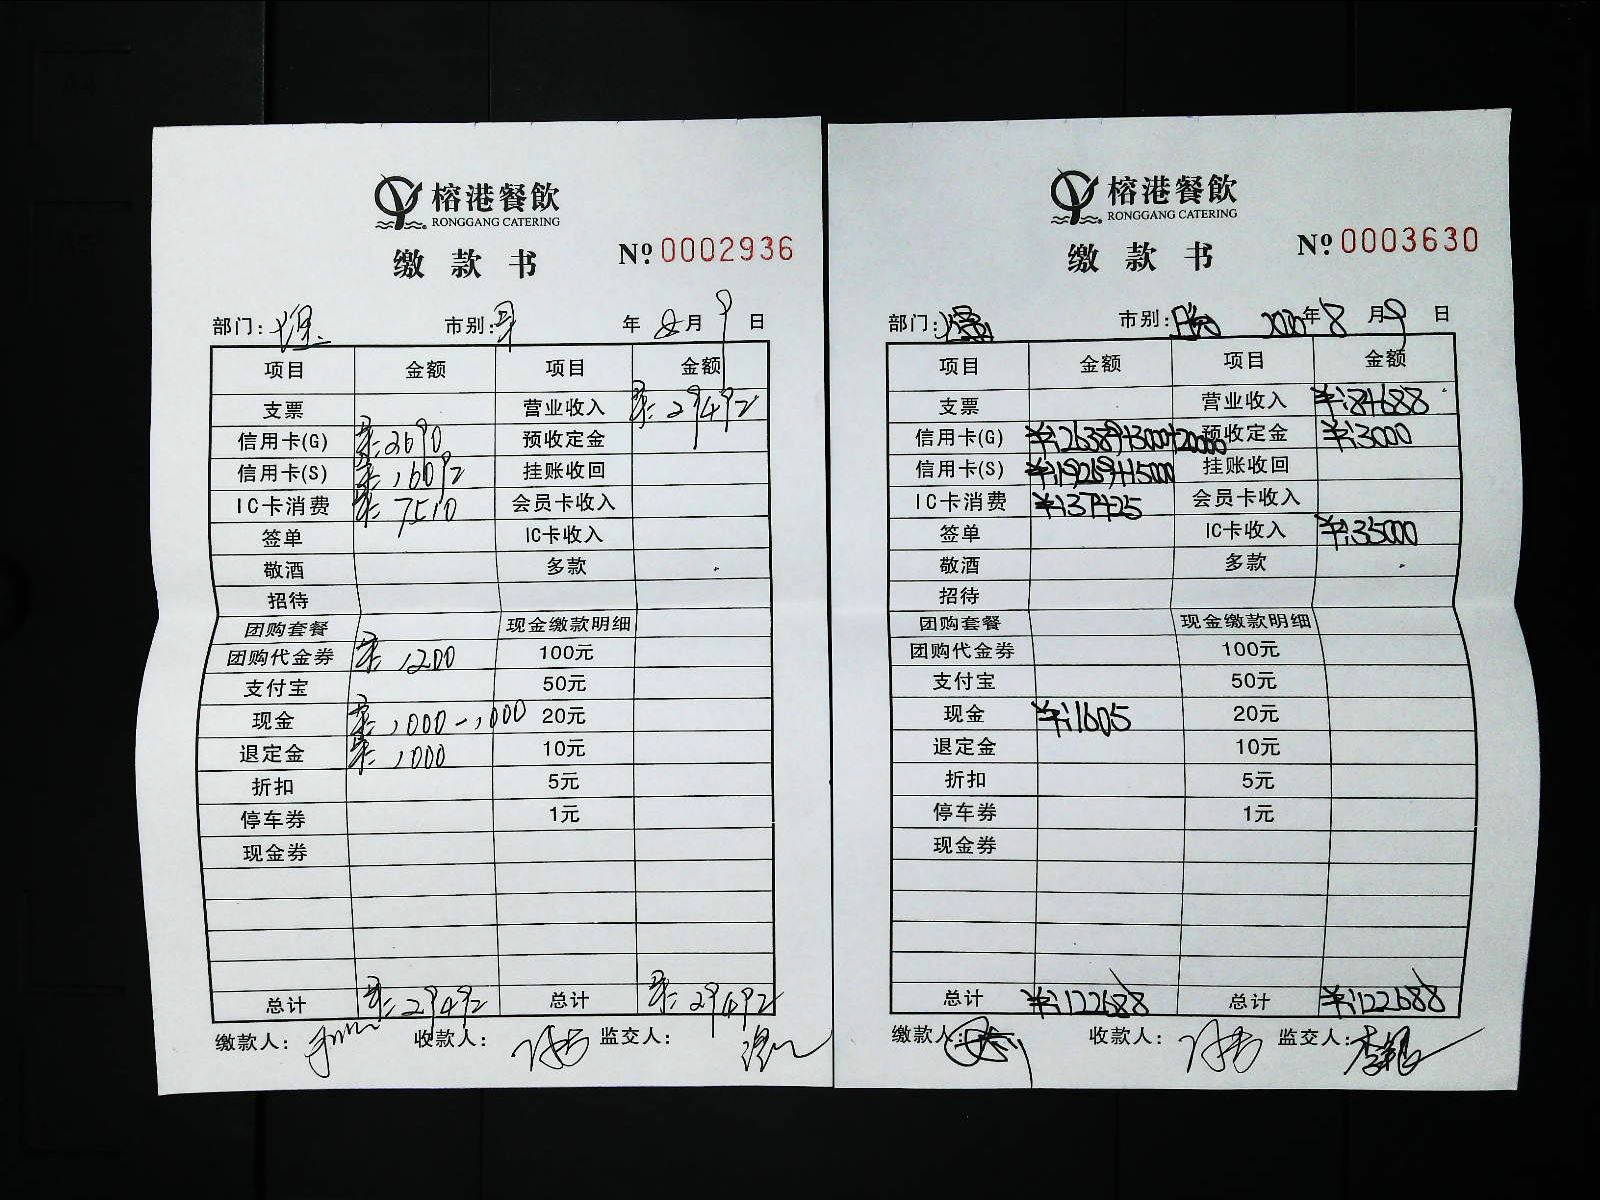 榕港餐飲
RONGGANG CATERING
缴款书
№ 0002936
部门: 市别: 年 8 月 9 日
项目 金额 项目 金额
支票 营业收入 ¥:29492
信用卡(G) ¥:2690 预收定金
信用卡(S) ¥:16092 挂账收回
IC卡消费 ¥:7510 会员卡收入
签单 IC卡收入
敬酒 多款
招待
团购套餐 现金缴款明细
团购代金券 ¥:1200 100元
支付宝 50元
现金 ¥:1000-1000 20元
退定金 ¥:1000 10元
折扣 5元
停车券 1元
现金券
总计 ¥:29492 总计 ¥:29492
缴款人: 收款人: 监交人:
榕港餐飲
RONGGANG CATERING
缴款书
№ 0003630
部门: 市别: 晚 2020年8月9日
项目 金额 项目 金额
支票 营业收入 ¥:84688
信用卡(G) ¥:26389+3000+20000 预收定金 ¥:3000
信用卡(S) ¥:19269+15000 挂账收回
IC卡消费 ¥:37425 会员卡收入
签单 IC卡收入 ¥:35000
敬酒 多款
招待
团购套餐 现金缴款明细
团购代金券 100元
支付宝 50元
现金 ¥:1605 20元
退定金 10元
折扣 5元
停车券 1元
现金券
总计 ¥:122688 总计 ¥:122688
缴款人: 收款人: 监交人: